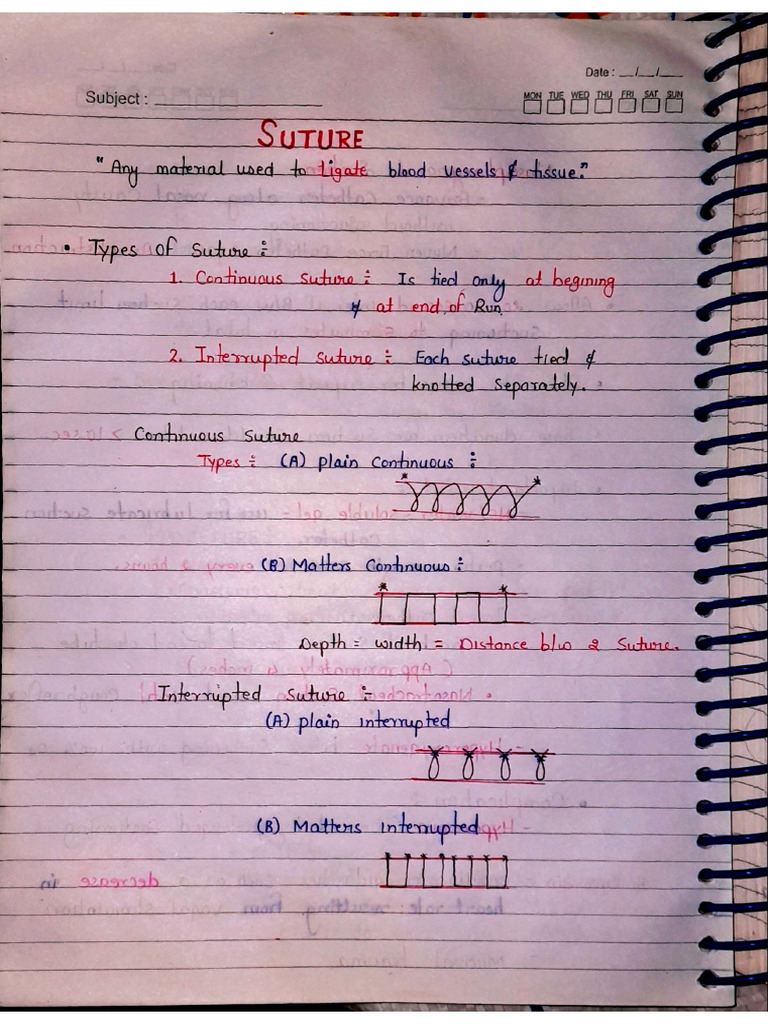 Date : __/__/__
Subject : ____________
MON TUE WED THU FRI SAT SUN
SUTURE
"Any material used to Ligate blood vessels & tissue."
• Types of Suture :
1. Continuous Suture : Is tied only at begining
& at end of Run.
2. Interrupted Suture : Each suture tied &
knotted Separately.
Continuous Suture
Types : (A) plain Continuous :
(B) Matters Continuous :
Depth = width = Distance b/w 2 Suture.
Interrupted suture :
(A) plain interrupted
(B) Matters interrupted